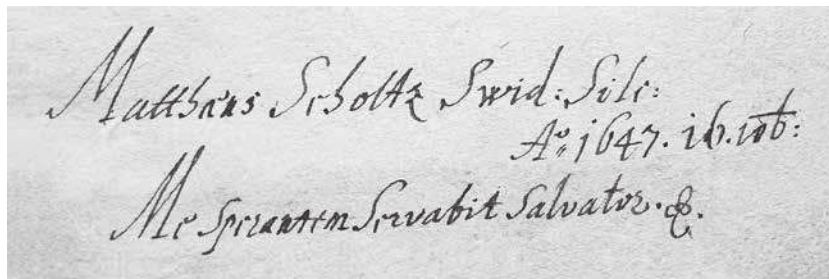 Matthæus Scholtz Swid: Siles:
Aº 1647. 16.
Me Sperantem Servabit Salvator. &.